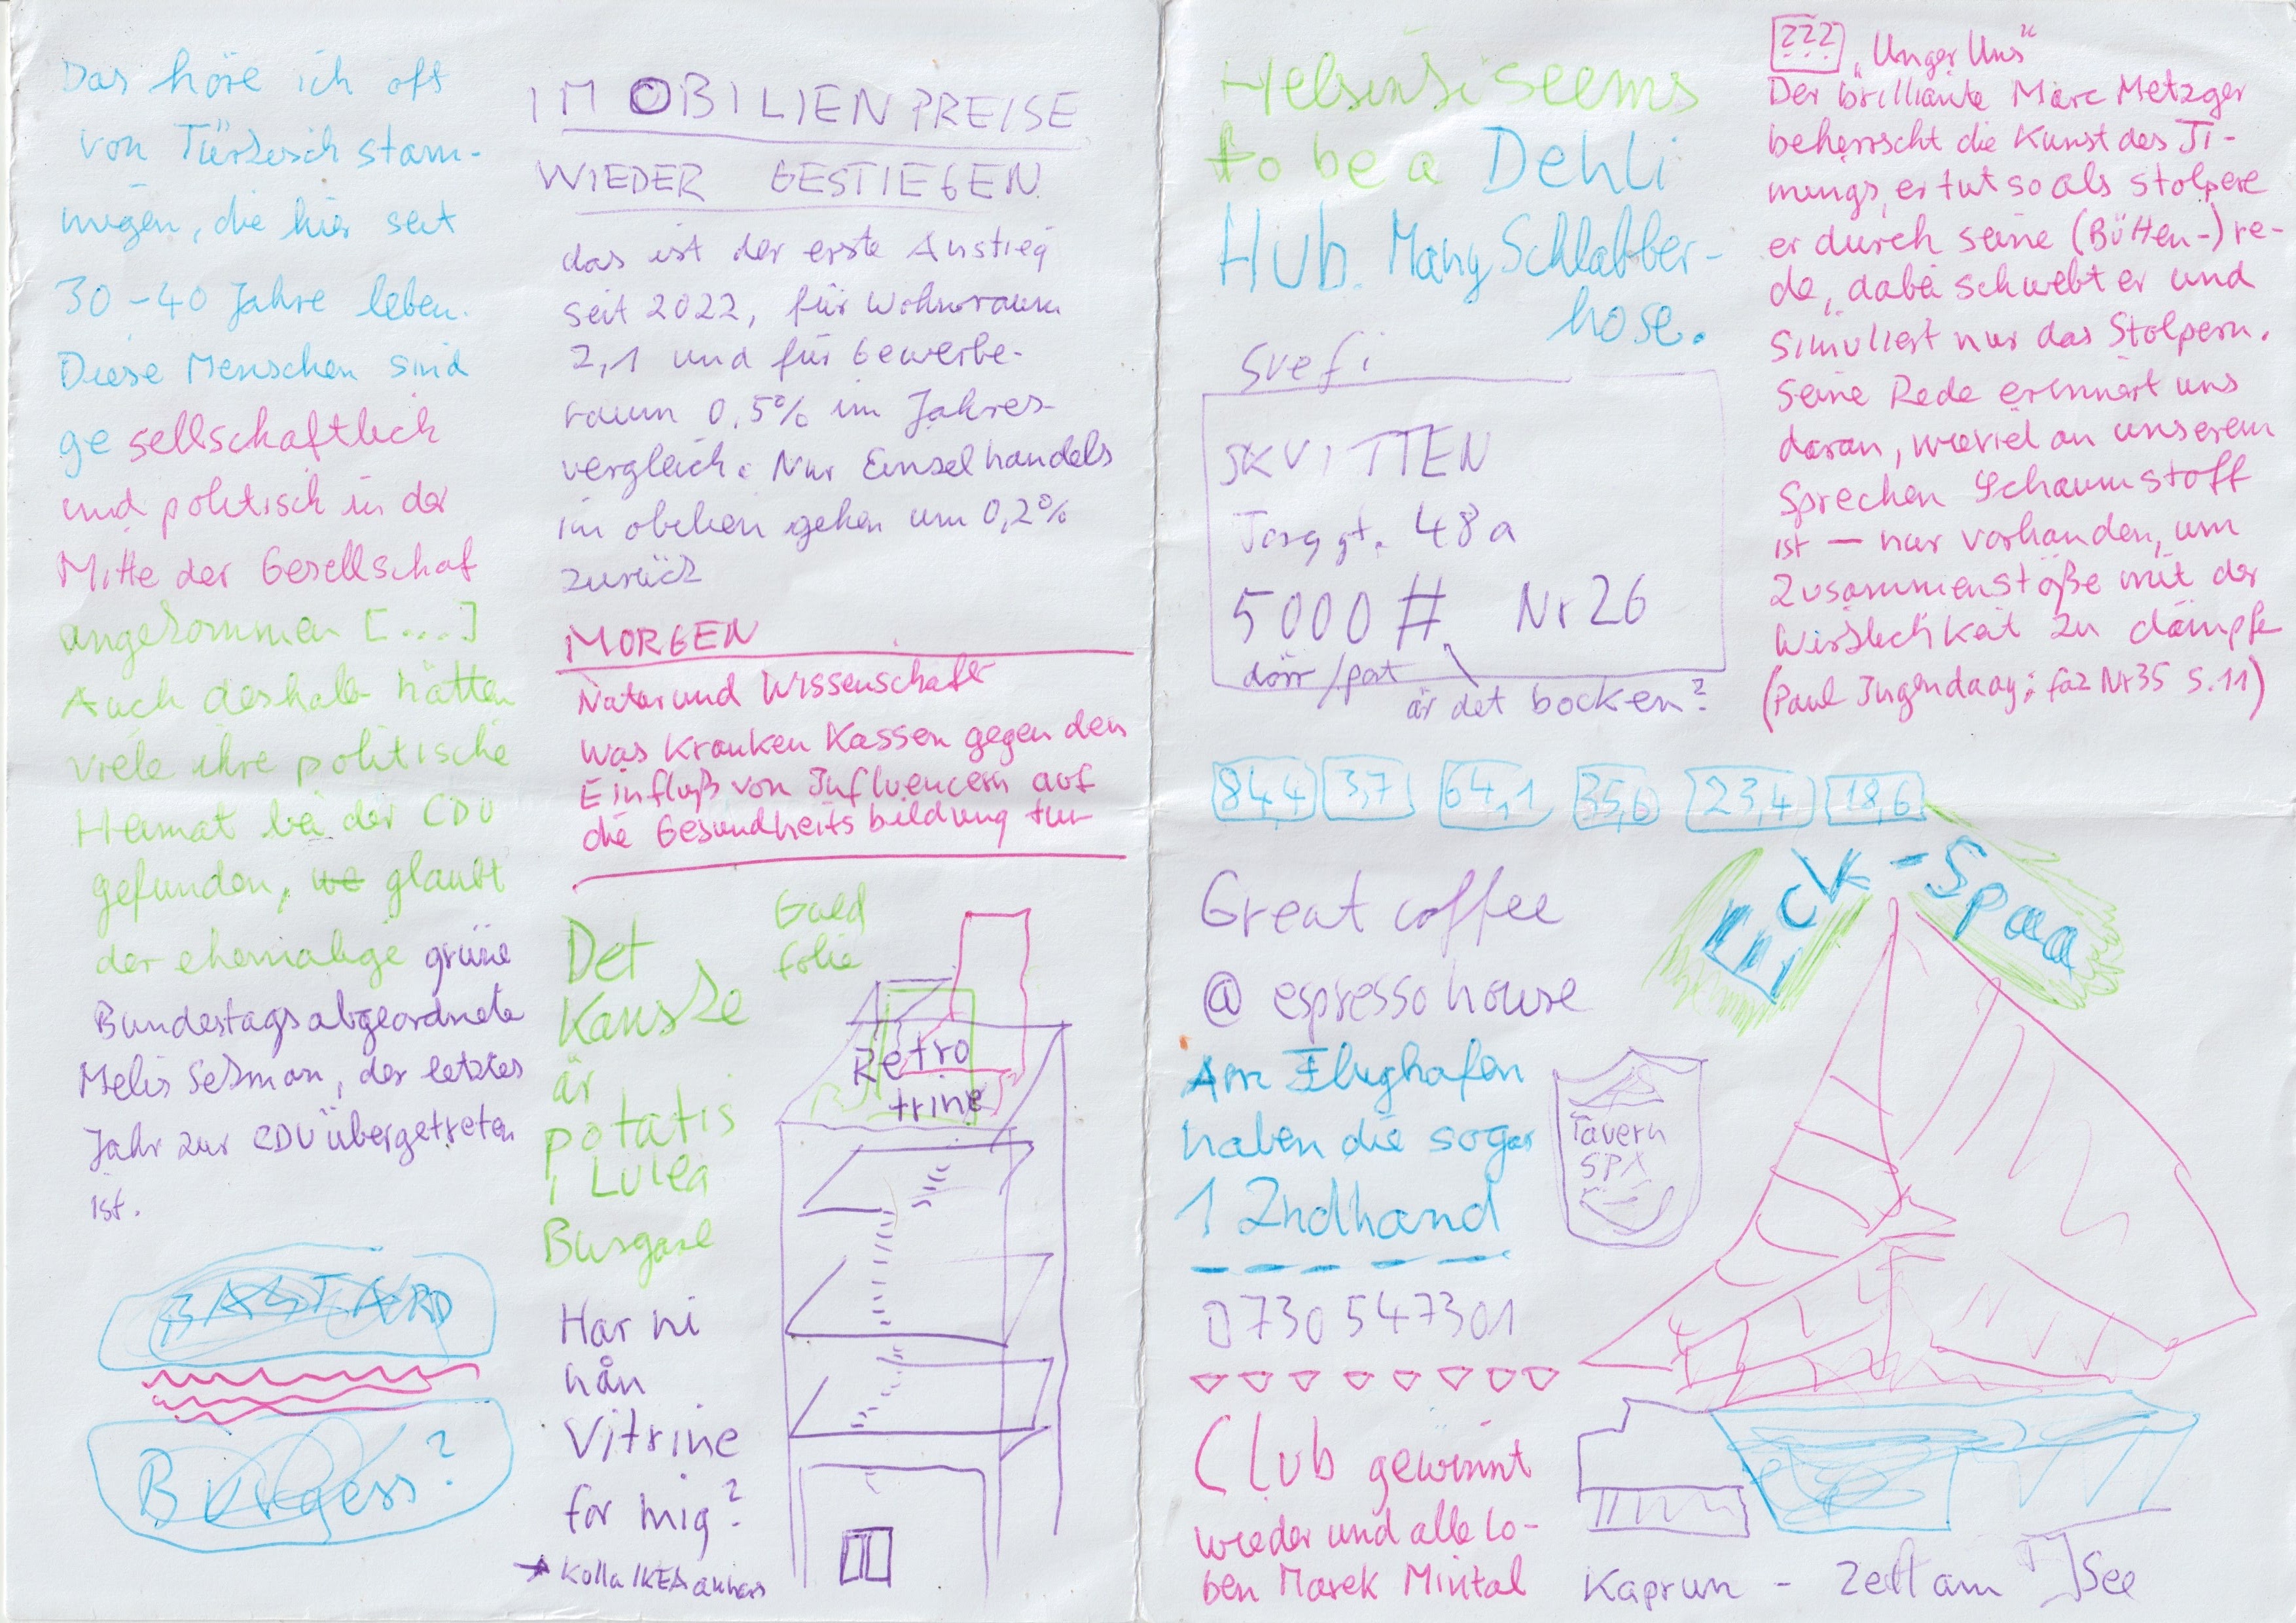 Das höre ich oft
von Türkisch stäm-
migen, die hier seit
30-40 Jahre leben.
Diese Menschen sind
gesellschaftlich
und politisch in der
Mitte der Gesellschaf
angekommen [...]
Auch deshalb hätten
viele ihre politische
Heimat bei der CDU
gefunden, glaubt
der ehemalige grüne
Bundestagsabgeordnete
Melis Sekman, der letztes
Jahr zur CDU übergetreten
ist.
BASTARD
Burgers?
IMOBILIENPREISE
WIEDER GESTIEGEN.
das ist der erste Anstieg
seit 2022, für Wohnraum
2,1 und für Gewerbe-
raum 0,5% im Jahres-
vergleich. Nur Einzelhandels
im obilien gehen um 0,2%
zurück
MORGEN
Natur und Wissenschaft
Was Kranken Kassen gegen den
Einfluß von Influencern auf
die Gesundheitsbildung tun
Det
Kanske
är
potatis
i Lulea
Burgare
Gold
folie
Retro
trine
Har ni
nån
Vitrine
för mig?
Kolla IKEA annars
Helsinki seems
to be a Dehli
Hub. Many Schlabber-
hose.
Svefi
SKVITTEN
Torggt. 48a
5000 # Nr 26
dörr/port
är det bocken?
??? „Unger Uns"
Der brilliante Marc Metzger
beherrscht die Kunst des Ti-
mings, er tut so als stolpere
er durch seine (Bütten-)re-
de, dabei schwebt er und
simuliert nur das Stolpern.
Seine Rede erinnert uns
daran, wieviel an unserem
Sprechen Schaumstoff
ist — nur vorhanden, um
Zusammenstöße mit der
Wirklichkeit zu dämpfe
(Paul Ingendaay; faz Nr35 S.11)
84,4 3,7 64,1 35,6 23,4 18,6
Great coffee
@ espresso house
Am Flughafen
haben die sogar
1 2ndhand
0730547301
Club gewinnt
wieder und alle lo-
ben Marek Mintal
ECK-Spaa
Tavern
SPX
Kaprun - Zell am See